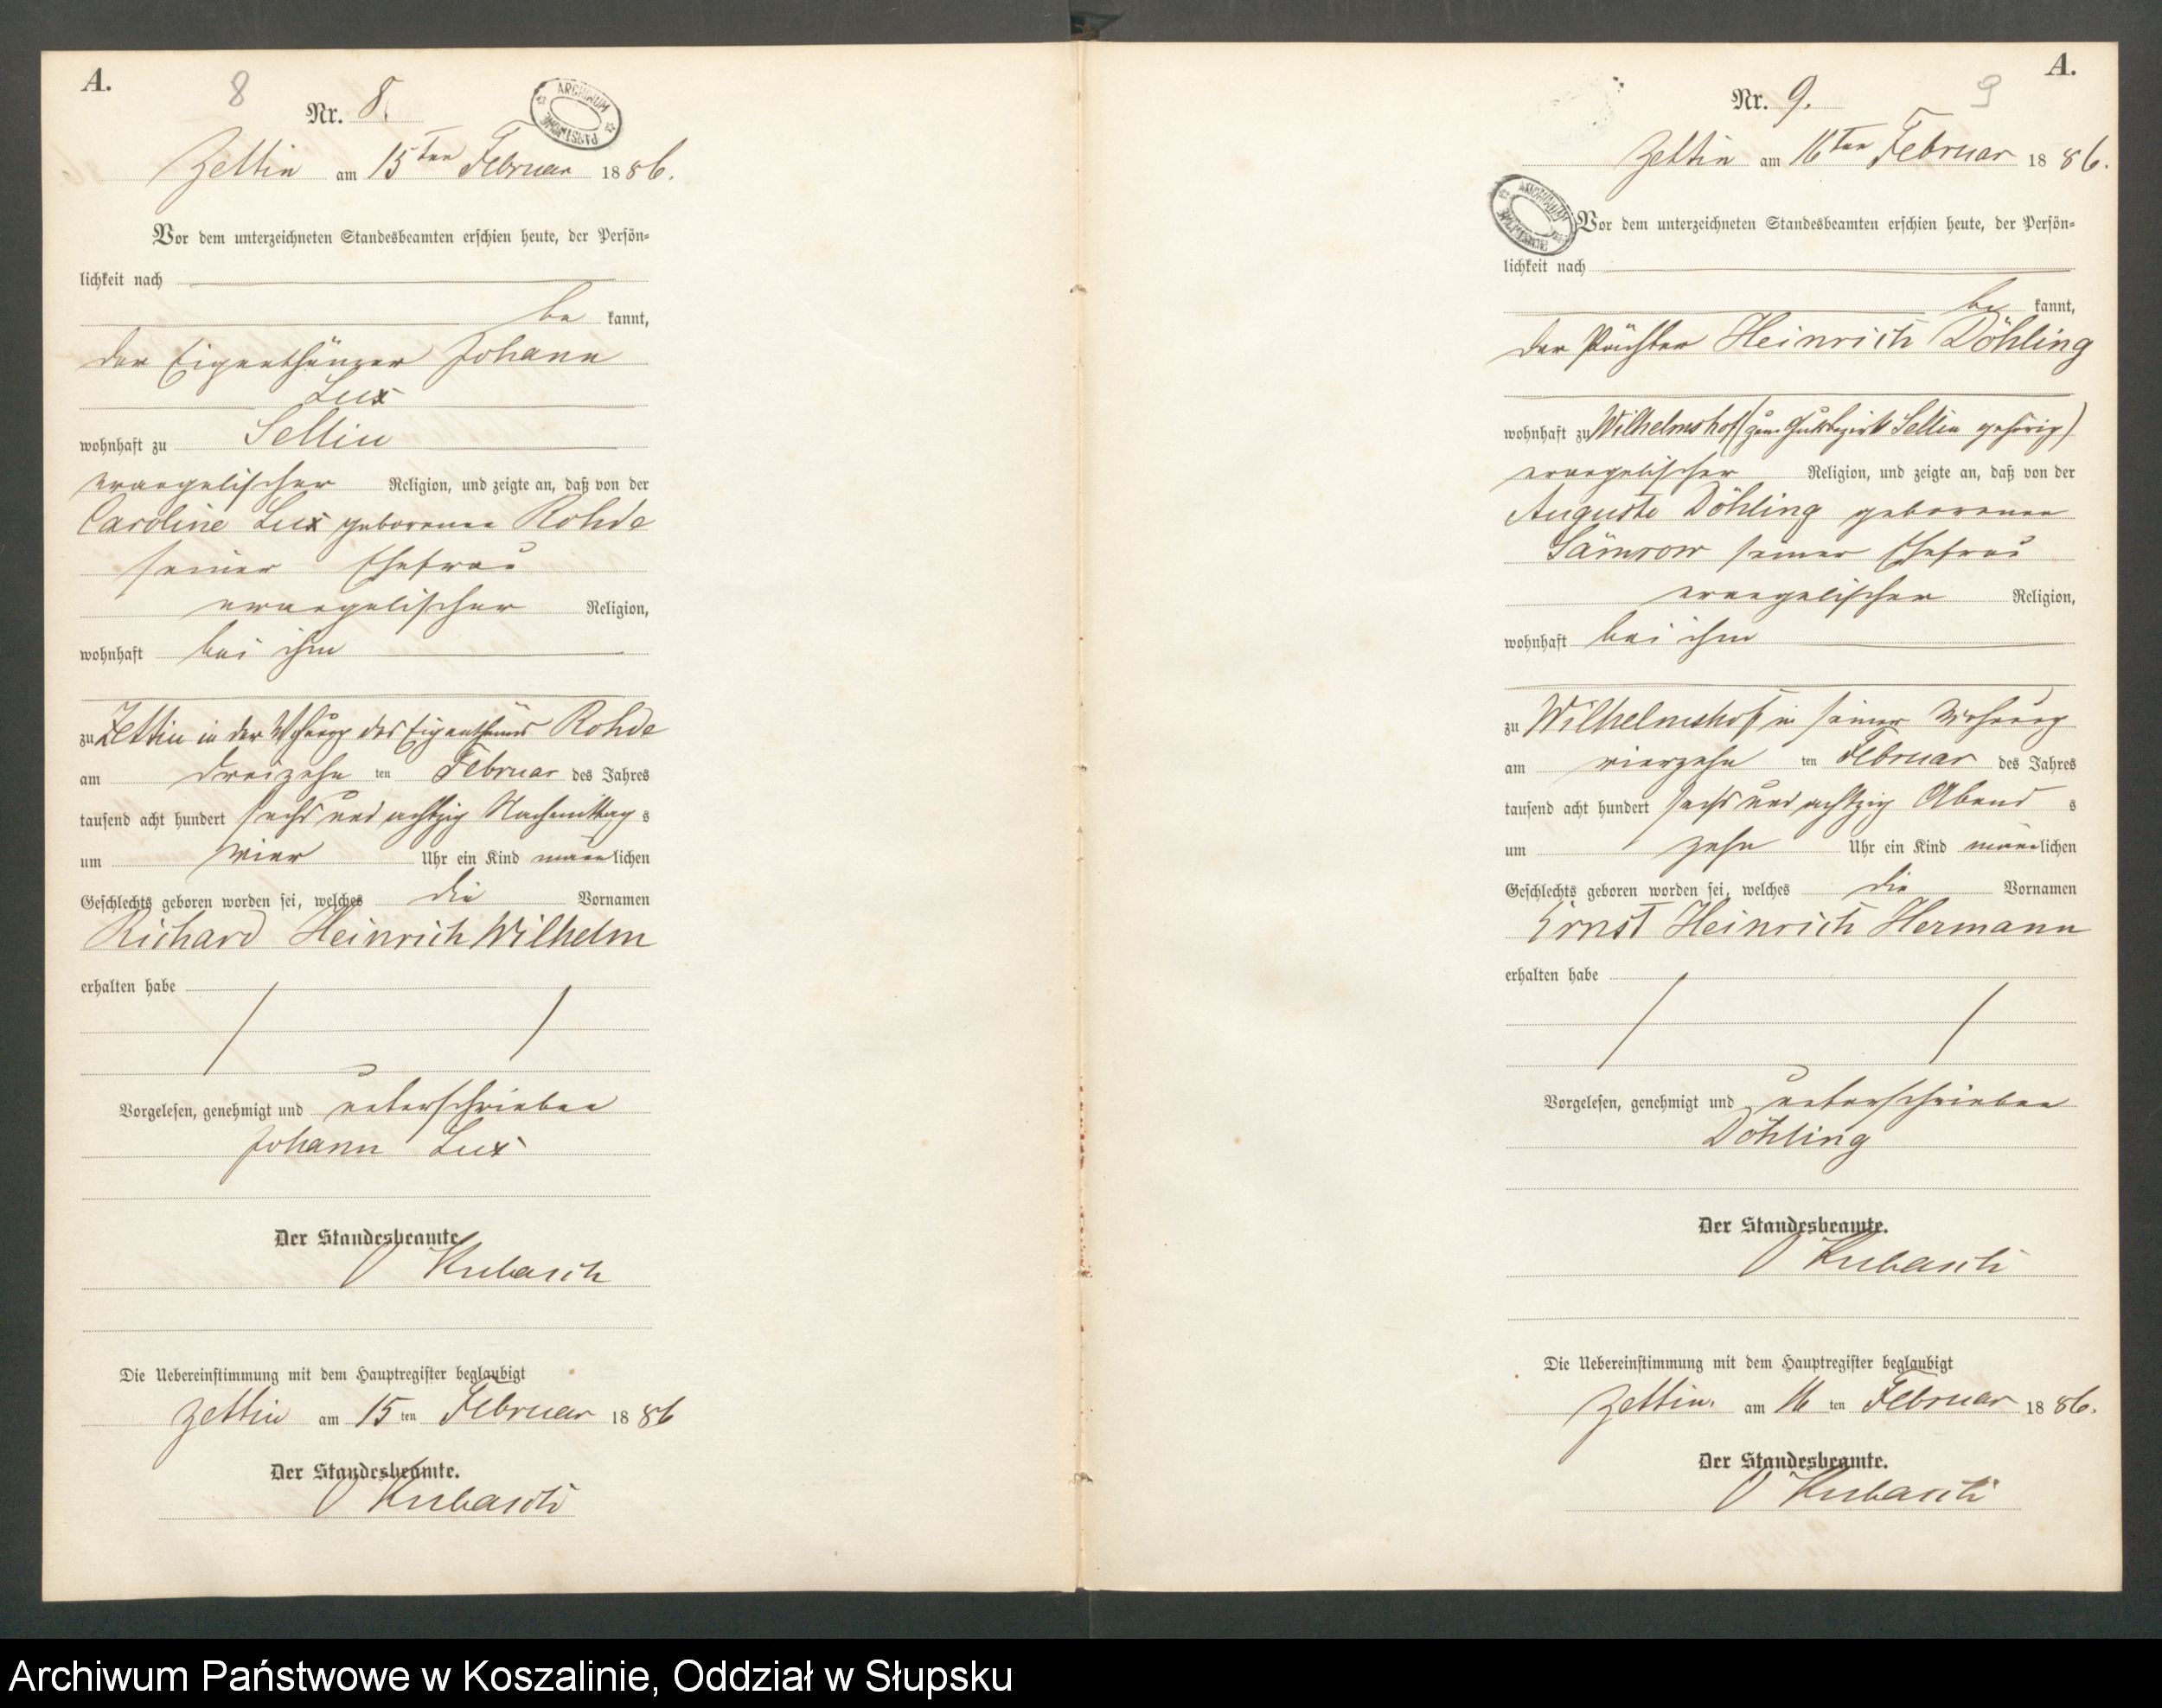 A.
8
Nr. 8.
ARCHIWUM PAŃSTWOWE
Zettin am 15ten Februar 1886.
Vor dem unterzeichneten Standesbeamten erschien heute, der Persön-
lichkeit nach
be kannt,
der Eigenthümer Johann
Lux
wohnhaft zu Sellin
evangelischer Religion, und zeigte an, daß von der
Caroline Lux geborenen Rohde
seiner Ehefrau
evangelischer Religion,
wohnhaft bei ihm
zu Zettin in der Wohnung des Eigenthümers Rohde
am dreizehn ten Februar des Jahres
tausend acht hundert sechs und achtzig Nachmittag s
um vier Uhr ein Kind männlichen
Geschlechts geboren worden sei, welches die Vornamen
Richard Heinrich Wilhelm
erhalten habe
Vorgelesen, genehmigt und unterschrieben
Johann Lux
Der Standesbeamte.
Kubasch
Die Uebereinstimmung mit dem Hauptregister beglaubigt
Zettin am 15 ten Februar 1886
Der Standesbeamte.
Kubasch
A.
9
Nr. 9.
Zettin am 16ten Februar 1886.
ARCHIWUM PAŃSTWOWE
Vor dem unterzeichneten Standesbeamten erschien heute, der Persön-
lichkeit nach
be kannt,
der Pächter Heinrich Döhling
wohnhaft zu Wilhelmshof (zum Gutsbezirk Sellin gehörig)
evangelischer Religion, und zeigte an, daß von der
Auguste Döhling geborenen
seiner Ehefrau
evangelischer Religion,
wohnhaft bei ihm
zu Wilhelmshof in seiner Wohnung
am vierzehn ten Februar des Jahres
tausend acht hundert sechs und achtzig Abend s
um zehn Uhr ein Kind männlichen
Geschlechts geboren worden sei, welches die Vornamen
Ernst Heinrich Hermann
erhalten habe
Vorgelesen, genehmigt und unterschrieben
Döhling
Der Standesbeamte.
Kubasch
Die Uebereinstimmung mit dem Hauptregister beglaubigt
Zettin. am 16 ten Februar 1886.
Der Standesbeamte.
Kubasch
Archiwum Państwowe w Koszalinie, Oddział w Słupsku